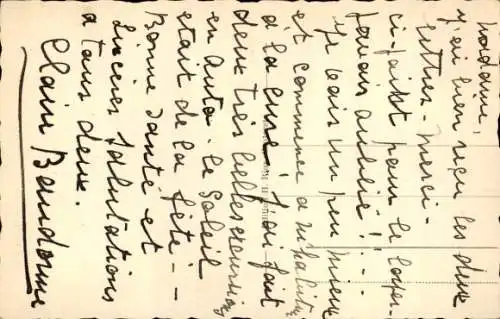 Madame,
j'ai bien reçu les deux
lettres - merci -
ci-joint pour le
jamais oublié ! - -
Je vais un peu mieux
et commence à m'habituer
à la cure ! J'ai fait
deux très belles excursions
en auto - le Soleil
était de la fête - -
Bonne Santé et
Sincères Salutations
à tous deux.
Claire Baudonne